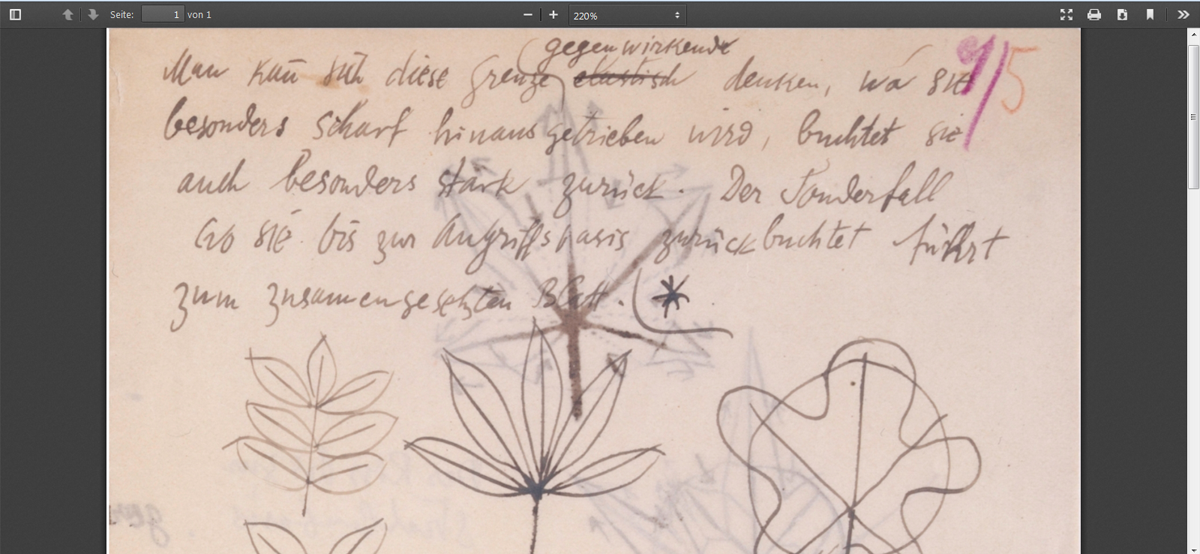 Seite: 1 von 1 220%
gegenwirkende
Man kan̄ sich diese Grenze elastisch denken, wo sie
9/5
besonders scharf hinausgetrieben wird, buchtet sie
auch besonders stark zurück. Der Sonderfall
wo sie bis zur Angriffsbasis zurückbuchtet führt
zum zusamengesetzten Blatt.